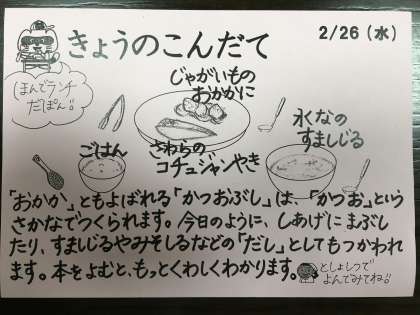 きょうのこんだて
2/26(水)
まんてんランチ
だぽん!!
じゃがいもの
おかかに
ごはん
さわらの
コチュジャンやき
水なの
すましじる
「おかか」ともよばれる「かつおぶし」は、「かつお」という
さかなでつくられます。今日のように、しあげにまぶし
たり、すましじるやみそしるなどの「だし」としてもつかわれ
ます。本をよむと、もっとくわしくわかります。
としょしつで
よんでみてね!!